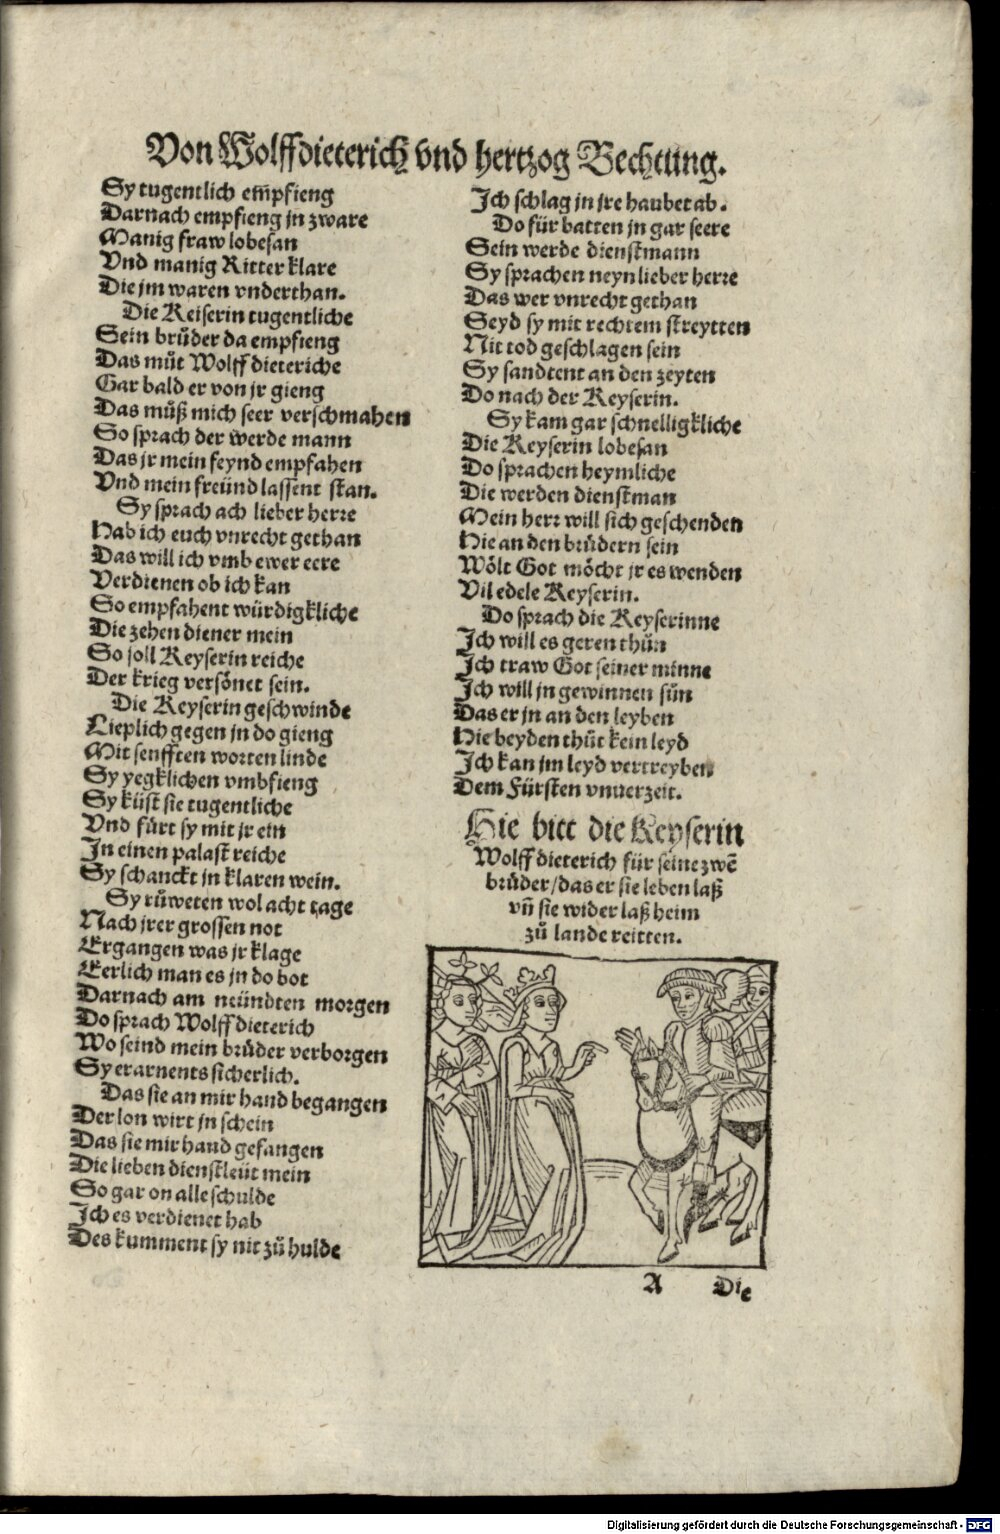 Von Wolffdieterich vnd hertzog Bechtung.
Sy tugentlich em̃pfieng
Darnach empfieng jn zware
Manig fraw lobesan
Vnd manig Ritter klare
Die jm waren vnderthan.
Die Keiserin tugentliche
Sein brůder da empfieng
Das můt Wolff dieteriche
Gar bald er von jr gieng
Das můß mich seer verschmahen
So sprach der werde mann
Das jr mein feynd empfahen
Vnd mein freünd lassent stan.
Sy sprach ach lieber herre
Hab ich euch vnrecht gethan
Das will ich vmb ewer eere
Verdienen ob ich kan
So empfahent würdigkliche
Die zehen diener mein
So soll Keyserin reiche
Der krieg versönet sein.
Die Keyserin geschwinde
Lieplich gegen jn do gieng
Mit senfften worten linde
Sy yegklichen vmbfieng
Sy küst sie tugentliche
Vnd fůrt sy mit jr ein
In einen palast reiche
Sy schanckt jn klaren wein.
Sy růweten wol acht tage
Nach jrer grossen not
Ergangen was jr klage
Eerlich man es jn do bot
Darnach am neündten morgen
Do sprach Wolff dieterich
Wo seind mein brůder verborgen
Sy erarnents sicherlich.
Das sie an mir hand begangen
Der lon wirt jn schein
Das sie mir hand gefangen
Die lieben dienstleüt mein
So gar on alle schulde
Ich es verdienet hab
Des kumment sy nit zů hulde
Ich schlag jn jre haubet ab.
Do für batten jn gar seere
Sein werde dienstmann
Sy sprachen neyn lieber herre
Das wer vnrecht gethan
Seyd sy mit rechtem streytten
Nit tod geschlagen sein
Sy sandtent an den zeyten
Do nach der Keyserin.
Sy kam gar schnelligkliche
Die Keyserin lobesan
Do sprachen heymliche
Die werden dienstman
Mein herr will sich geschenden
Hie an den brüdern sein
Wölt Got möcht jr es wenden
Vil edele Keyserin.
Do sprach die Keyserinne
Ich will es geren thůn
Ich traw Got seiner minne
Ich will jn gewinnen sůn
Das er jn an den leyben
Hie beyden thůt kein leyd
Ich kan jm leyd vertreyben
Dem Fürsten vnuerzeit.
Hie bitt die Keyserin
Wolff dieterich für seine zwē
brüder/das er sie leben laß
vñ sie wider laß heim
zů lande reitten.
A Die
Digitalisierung gefördert durch die Deutsche Forschungsgemeinschaft - DFG